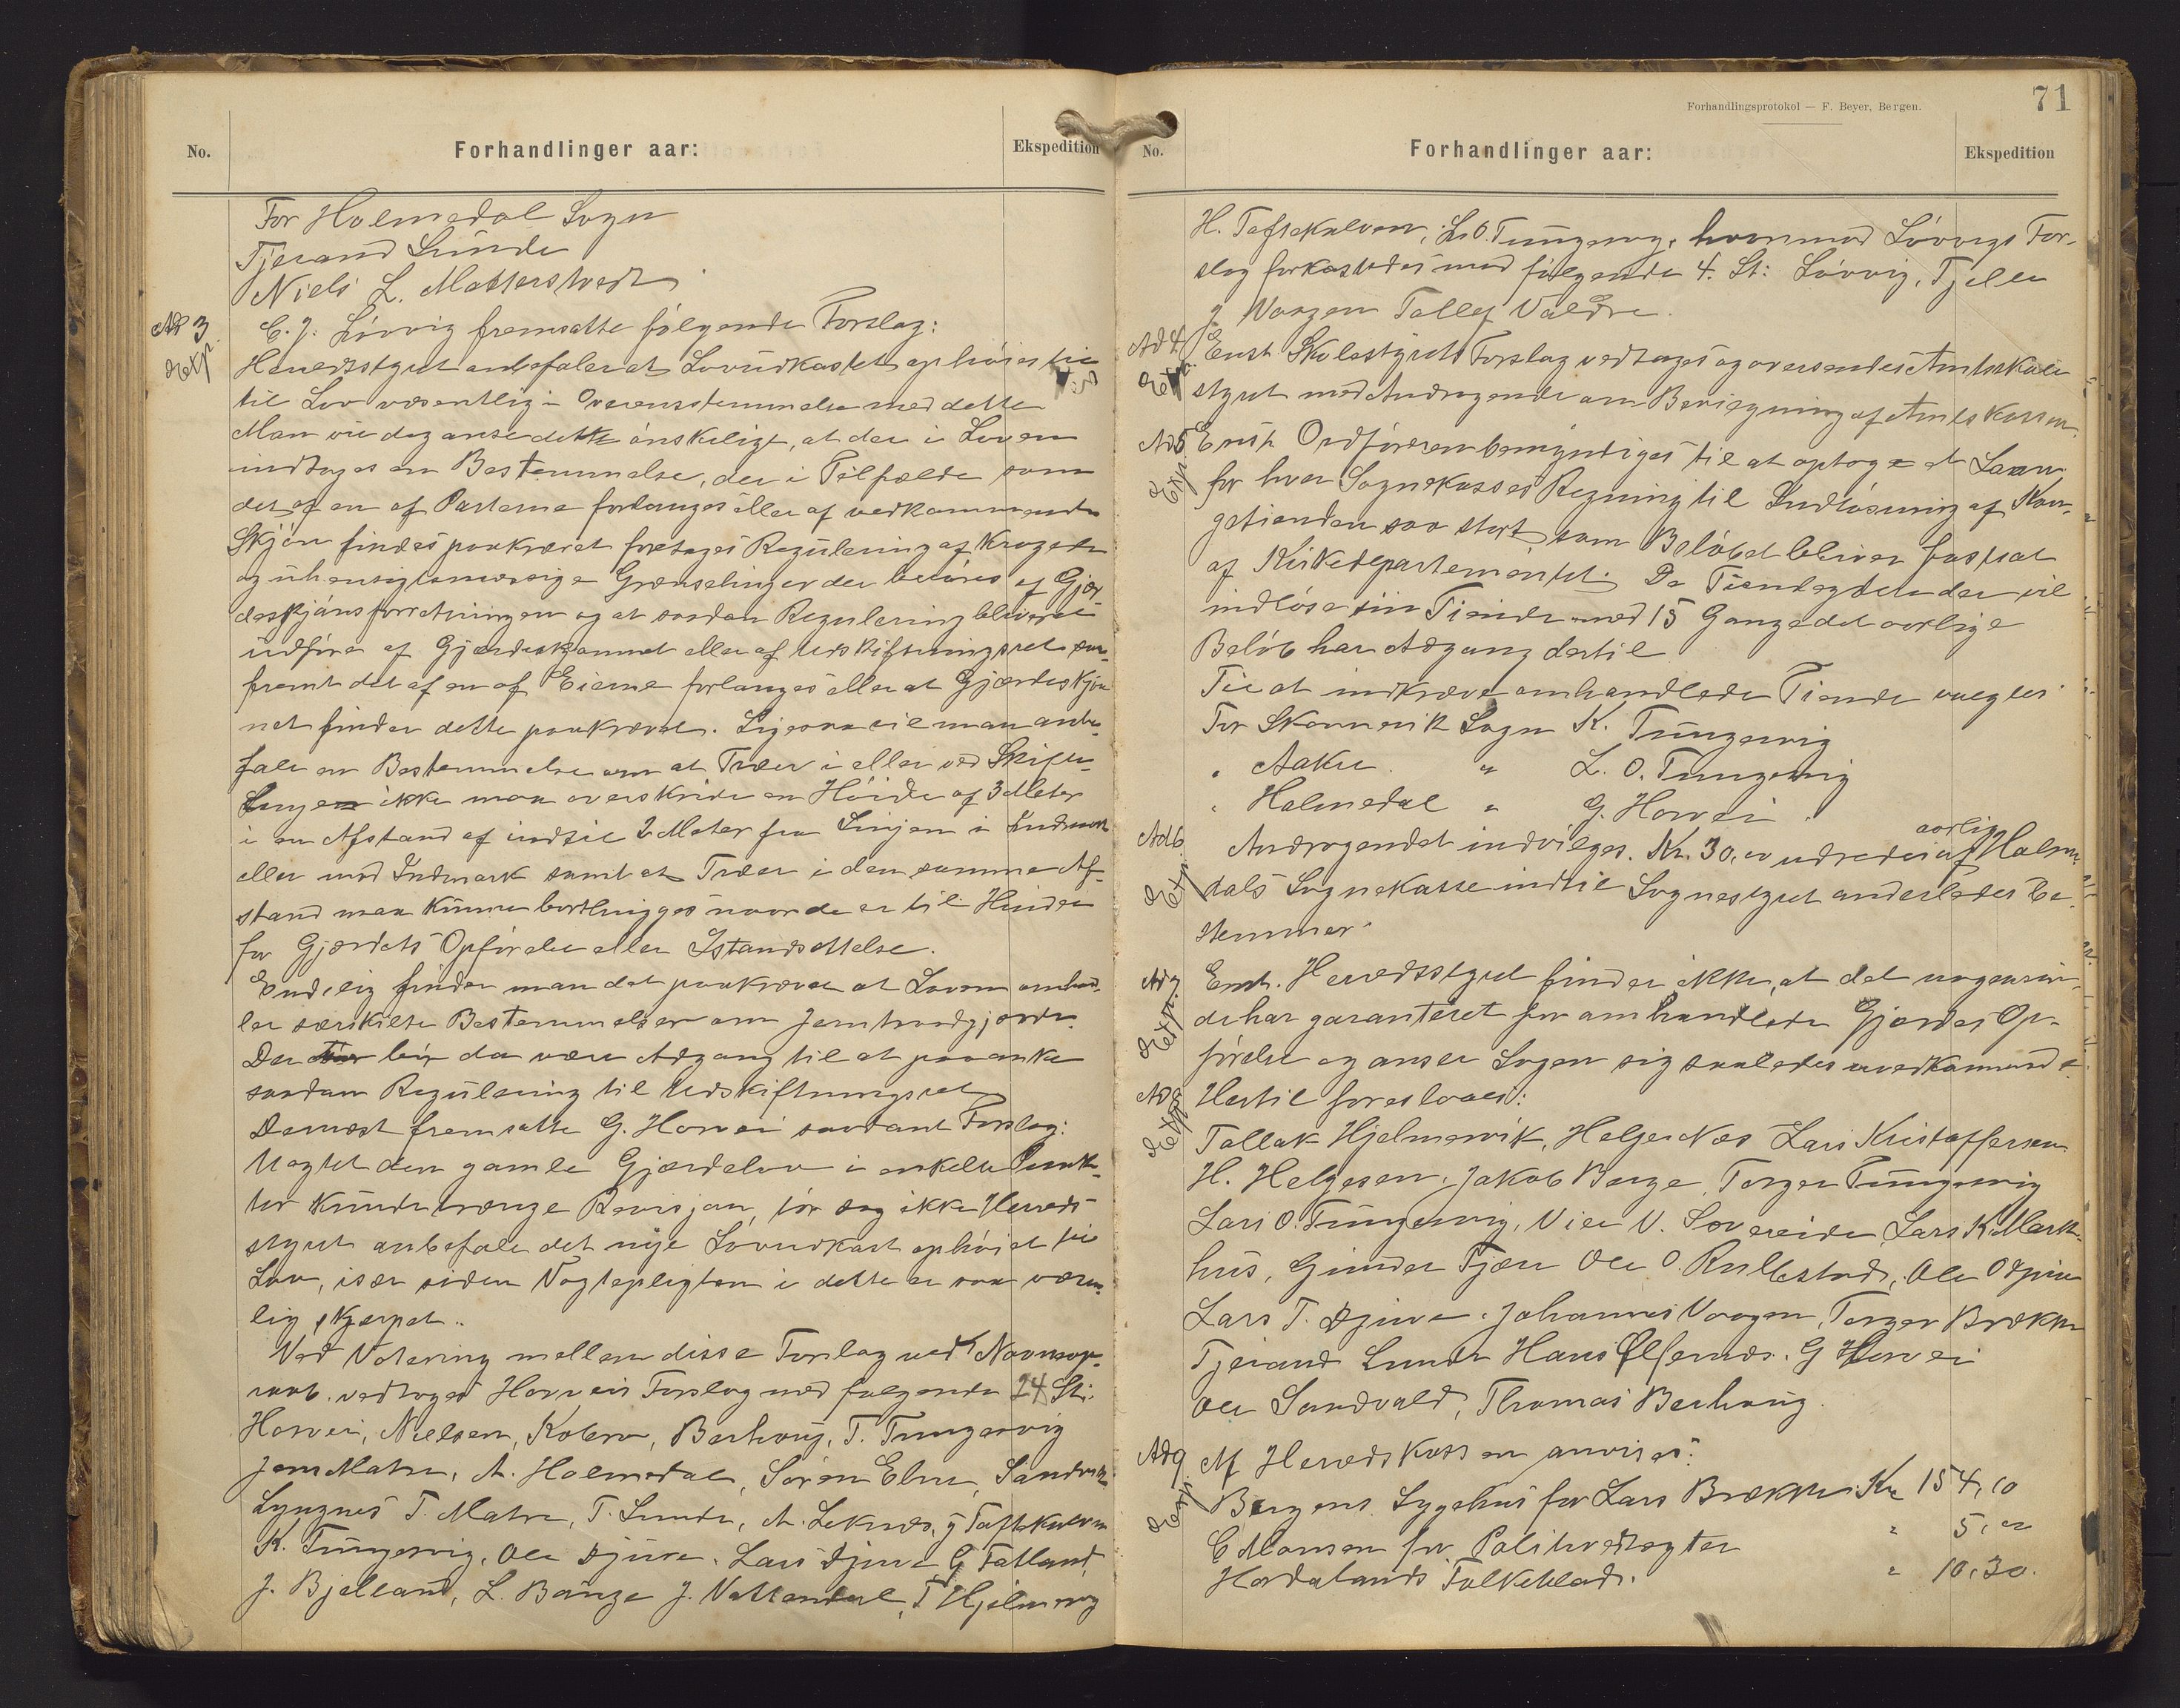 No.
Forhandlinger aar:
Ekspedition
For Holmedal Sogn
Tjerand Lunde
Niels L. Matterstvedt
Ad 3
Exp.
E. J. Løvvig fremsatte følgende Forslag:
Heredsstyret anbefaler at Lovudkastet ophøies til
til Lov væsentlig i Overensstemmelse med dette
Man vil dog anse dette ønskeligt, at der i Loven
indtages en Bestemmelse, der i Tilfælde som
det af en af Parterne forlanges eller af vedkommende
Skjøn findes paakrævet foretages Regulering af Krogede
og uhensigtsmæssige Grænselinjer der berøres af Gjær-
desskjønsforretningen og at saadan Regulering bliver at
udføre af Gjærdeskjønnet eller af Udskiftningsret saa-
fremt det af en af Eierne forlanges eller at Gjærdeskjøn-
net finder dette paakrævet. Ligesaa vil man anbe-
fale en Bestemmelse om at Træer i eller ved Skifte-
linjen ikke maa overskride en Høide af 3 Meter
i en Afstand af indtil 2 Meter fra Linjen i Indmark
eller mod Indmark samt at Træer i den samme Af-
stand maa kunne borthugges naar de er til Hinder
for Gjærdets Opførelse eller Istandsættelse.
Endelig finder man det paakrævet at Loven omhand-
ler særskilte Bestemmelser om Jerntraadgjærde.
Der bør da være Adgang til at paaanke
saadan Regulering til Udskiftningsret
Dernæst fremsatte G. Horvei saadant Forslag:
Uagtet den gamle Gjærdelov i enkelte Punk-
ter kunde trænge Revisjon, tør dog ikke Hereds-
styret anbefale det nye Lovudkast ophøiet til
Lov, især siden Vogtepligten i dette er saa væsent-
lig skjærpet.
Ved Votering mellem disse Forslag ved Navneop-
raab vedtoges Horveis Forslag med følgende 24 St:
Horvei, Nielsen, Kolera, Berhoug, T. Tungesvig
Jens Matre, A. Holmedal, Søren Ebne, Sandvik
Lyngnes T. Matre, T. Lunde, A. Leknes, J Toftekalven
K. Tungesvig, Ole Djuve, Lars Djuve G Fatland,
J. Bjelland, L. Bauge J. Vattendal, T Hjelmevog
Forhandlingsprotokol — F. Beyer, Bergen.
71
No.
Forhandlinger aar:
Ekspedition
H. Toftekalven, L. O. Tungesvig, hvormod Løvvigs For-
slag forkastedes med følgende 4. St: Løvvig, Fjelle
J Vaagen Tollef Valdre.
Ad 4
Exp.
Enst Skolestyrets Forslag vedtages og oversendes Amtsskole
styret med Andragende om Bevilgning af Amtskassen.
Ad 5
Exp.
Enst Ordføreren bemyndiges til at optage et Laan
for hver Sognekasses Regning til Indløsning af Kon-
getienden saa stort som Beløbet bliver fastsat
af Kirkedepartementet. De Tiendeydere der vil
indløse sin Tiende med 15 Gange det aarlige
Beløb har Adgang dertil
Til at indkræve omhandlede Tiende vælges
For Skonevik Sogn K. Tungesvig
" Aakre " L. O. Tungesvig
" Holmedal " G. Horvei.
Ad 6.
Exp.
Andragendet indvilges. Kr. 30, er udredes aarlig af Holme-
dals Sognekasse indtil Sognestyret anderledes be-
stemmer.
Ad 7
Exp.
Enst. Heredsstyret finder ikke, at det nogensin-
de har garanteret for omhandlede Gjærdes Op-
førelse og anser Sogen sig saaledes uvedkommende.
Ad 8
Exp.
Hertil foreslaaes:
Tollak Hjelmevik, Helge Næs Lars Kristoffersen
H. Helgesen, Jakob Berge, Torger Tungesvig
Lars O. Tungesvig, Nils N. Sævereide Lars K. Mark-
hus, Gunder Fjære Ole O. Rullestad, Ole O Djuve
Lars T. Djuve, Johannes Vaagen, Torger Brække
Tjerand Lunde Hans Ølfernæs. G Horvei
Ole Sandvald, Thomas Berhoug.
Ad 9
Exp.
Af Heredskassen anvises:
Bergens Sygehus for Lars Brække Kr 154,10
E Monsen for Politivedtægter " 5,00
Hordalands Folkeblad. " 10,30.